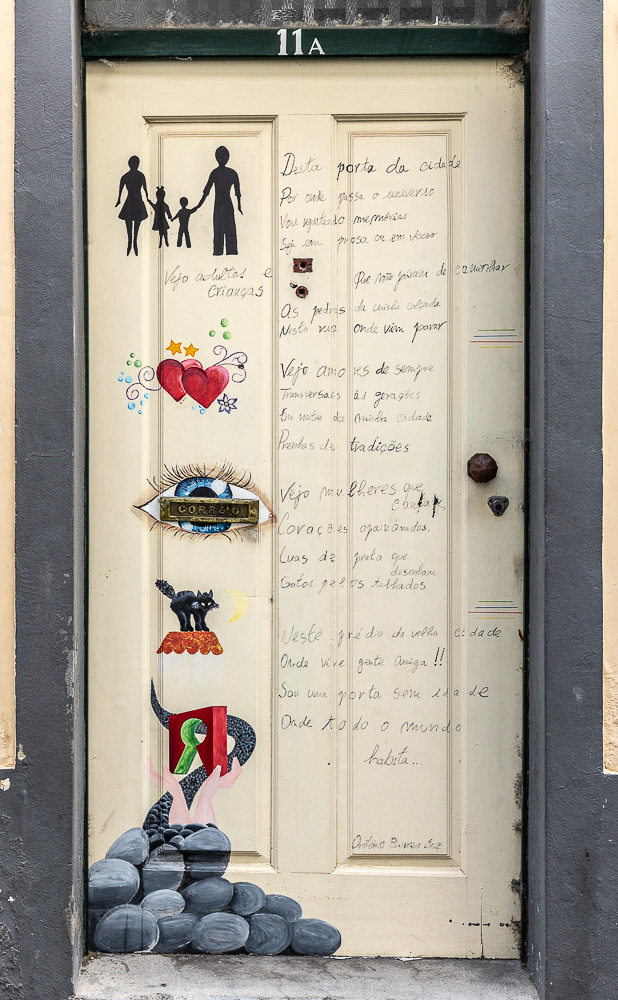 11A
Desta porta da cidade
Por onde passa o universo
Vou registando memórias
Seja em prosa ou em verso
Vejo adultos e
crianças
Que não param de caminhar
As pedras da minha calçada
Nesta rua onde vim parar
Vejo amores de sempre
Transversais às gerações
Em noites da minha cidade
Prenhas de tradições
Vejo mulheres que
CORREIO
Corações apaixonados,
Luas de prata que
desenham
Gatos pelos telhados
Neste prédio da velha cidade
Onde vive gente amiga!!
Sou uma porta sem idade
Onde todo o mundo
habita...